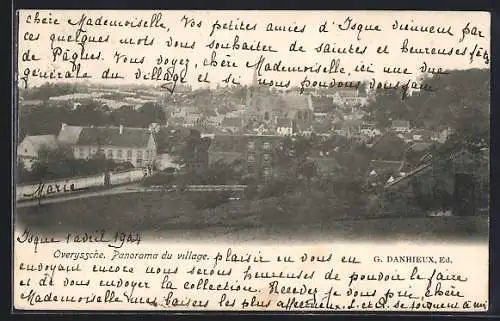 chère Mademoiselle, Vos petites amies d'Isque viennent par
ces quelques mots vous souhaiter de saintes et heureuses fêtes
de Pâques. Vous voyez, chère Mademoiselle, ici une vue
générale du village et si nous pouvons vous faire
Marie
Isque 1 avril 1904
Overyssche. Panorama du village.
G. DANHIEUX, Ed.
plaisir en vous en
envoyant encore nous serons heureuses de pouvoir le faire
et de vous envoyer la collection. Recevez je vous prie, chère
Mademoiselle nos baisers les plus affectueux.